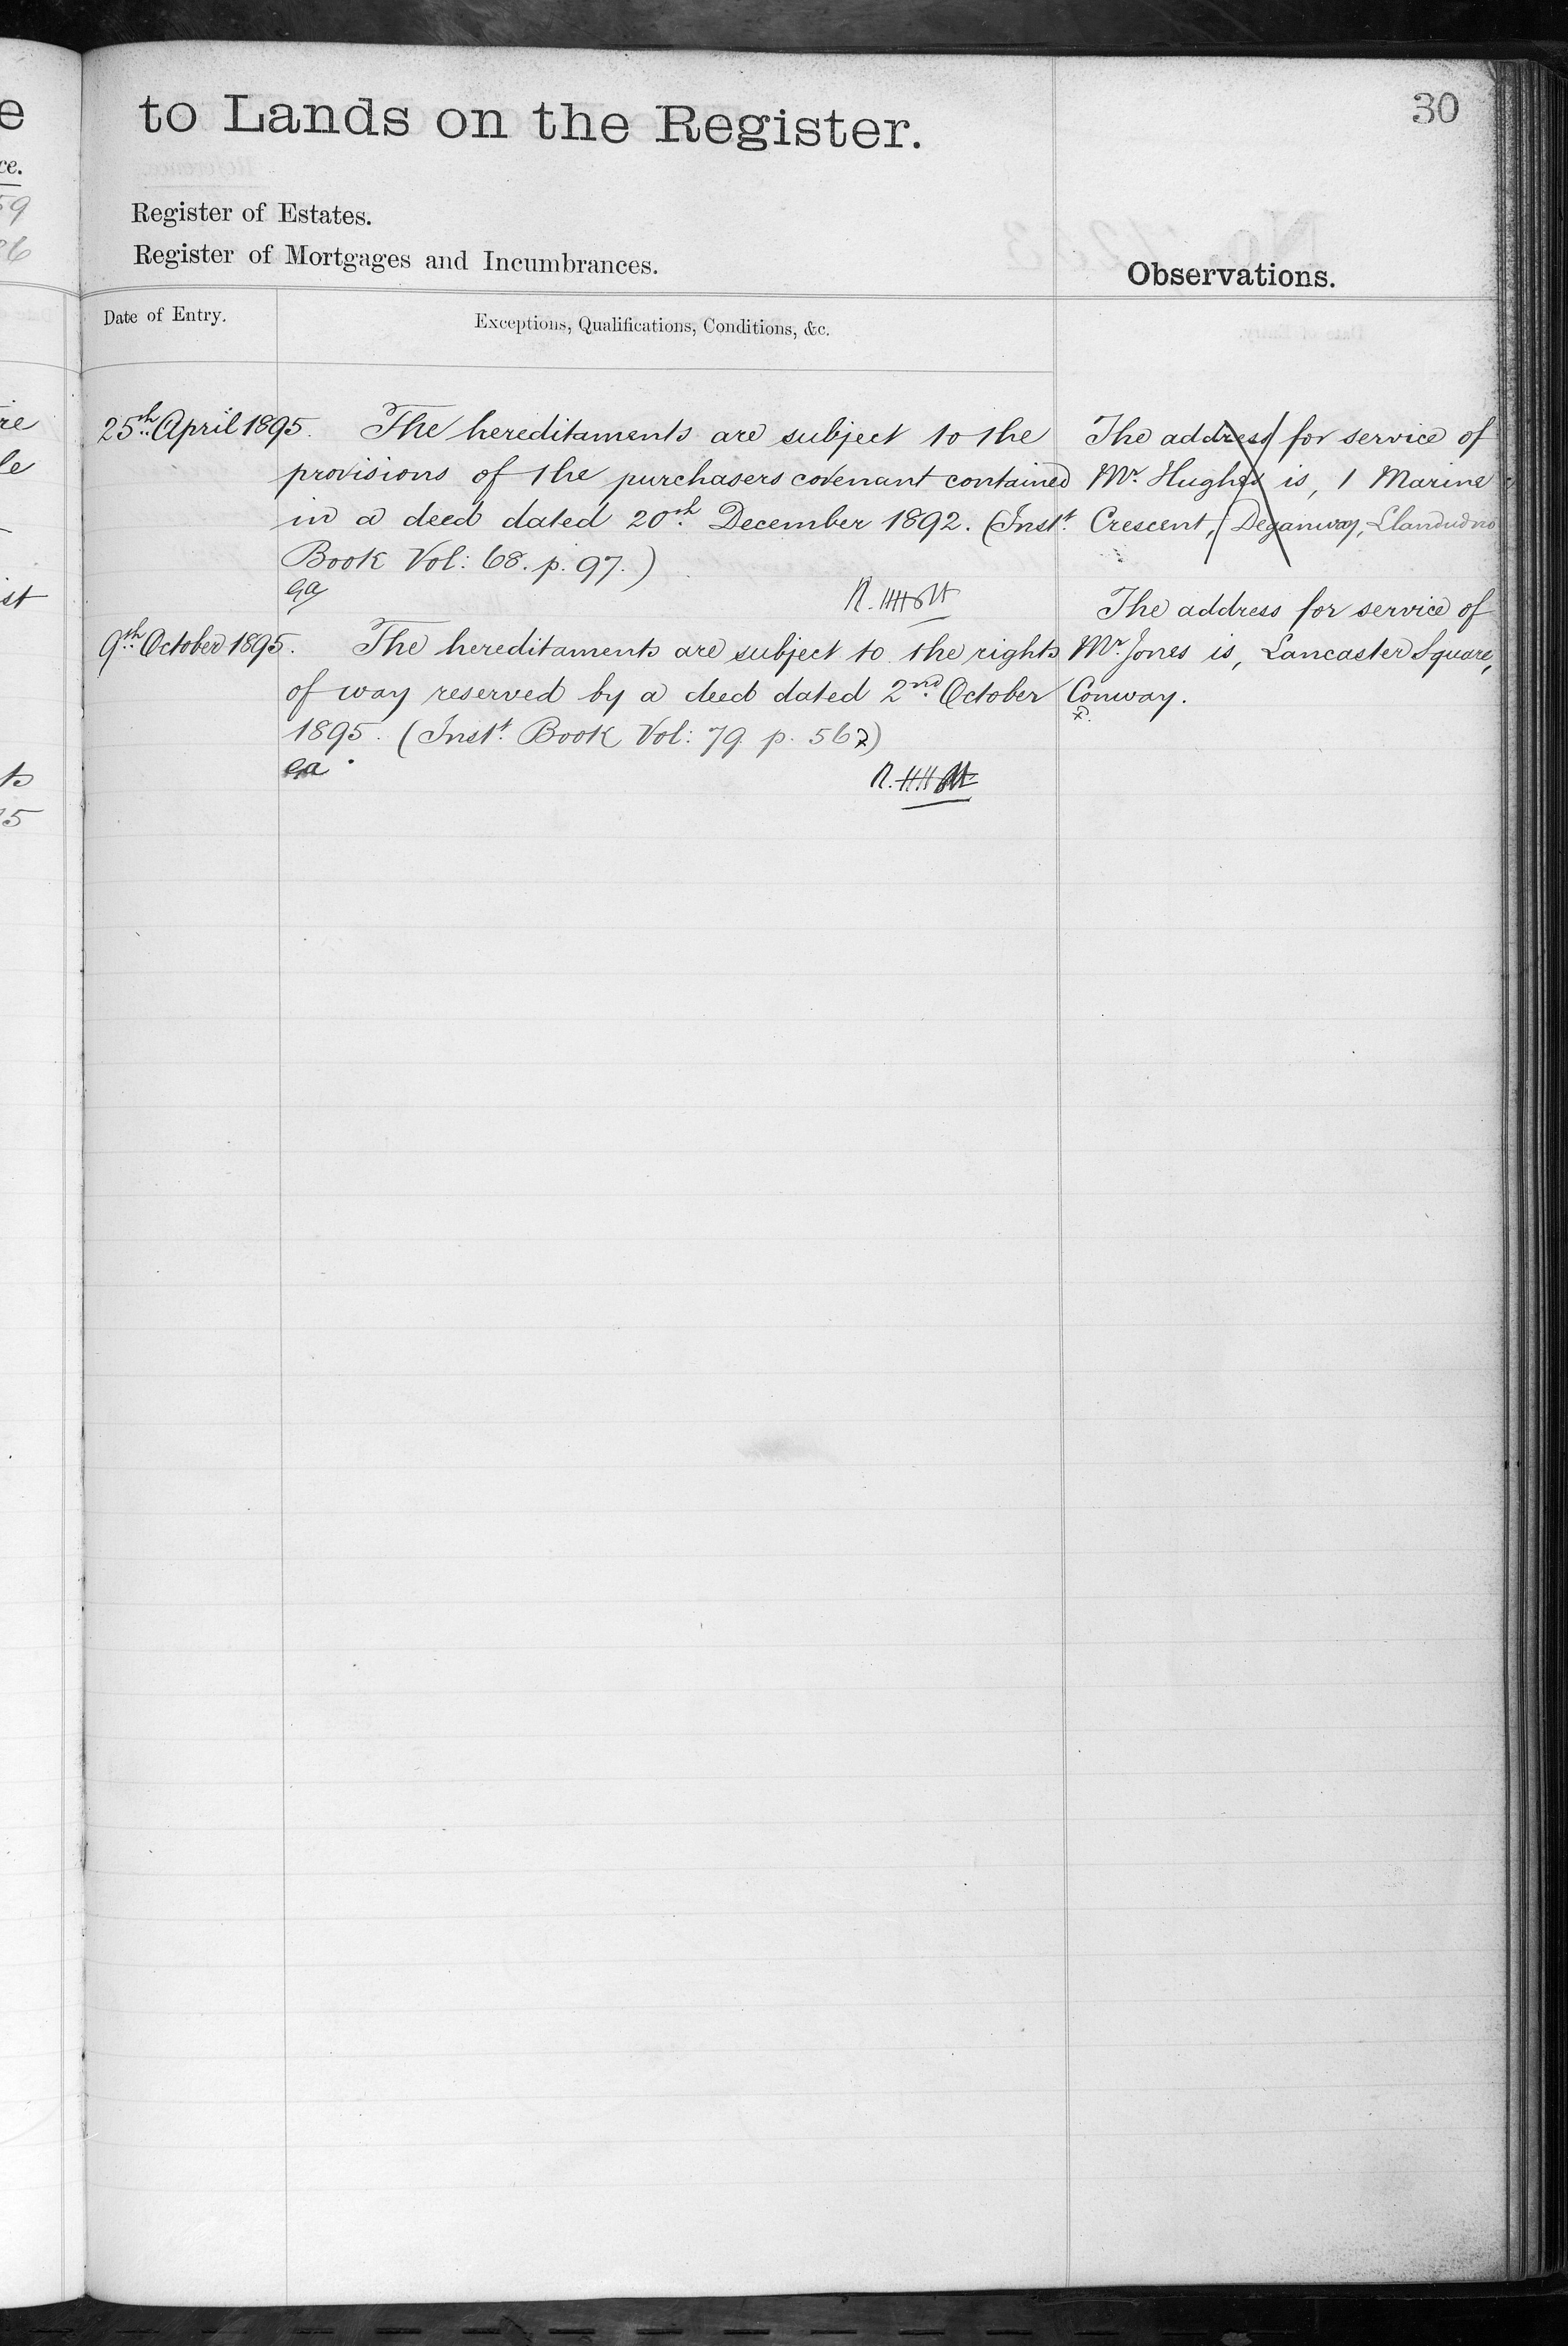 to Lands on the Register.
30
Register of Estates.
Register of Mortgages and Incumbrances.
Observations.
Date of Entry.
Exceptions, Qualifications, Conditions, &c.
25th April 1895. The hereditaments are subject to the
provisions of the purchasers covenant contained
in a deed dated 20th December 1892. (Inst.
Book Vol: 68. p. 97.)
9th October 1895. The hereditaments are subject to the rights
of way reserved by a deed dated 2nd October
1895. (Inst. Book Vol: 79 p. 562)
The address for service of
Mr. Hughes is, 1 Marine
Crescent, Deganway, Llandudno.
The address for service of
Mr. Jones is, Lancaster Square,
Conway.